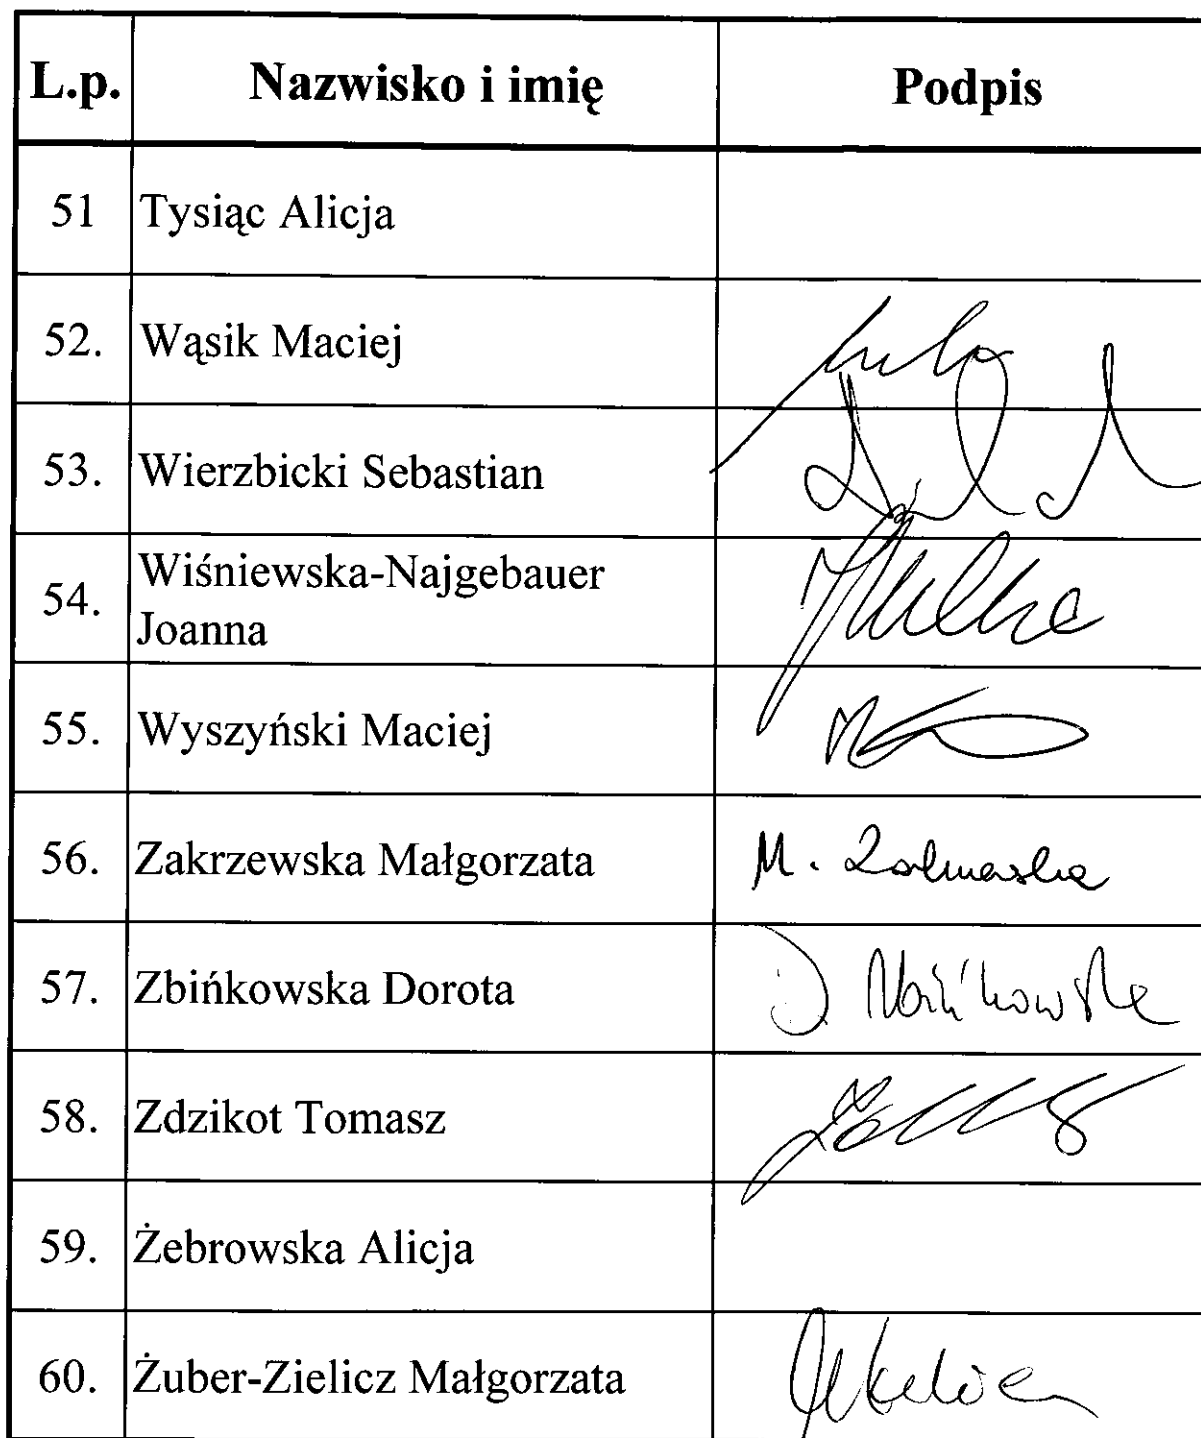 L.p. Nazwisko i imię Podpis
51 Tysiąc Alicja
52. Wąsik Maciej
53. Wierzbicki Sebastian
54. Wiśniewska-Najgebauer
Joanna
55. Wyszyński Maciej
56. Zakrzewska Małgorzata M.
57. Zbińkowska Dorota D.
58. Zdzikot Tomasz
59. Żebrowska Alicja
60. Żuber-Zielicz Małgorzata